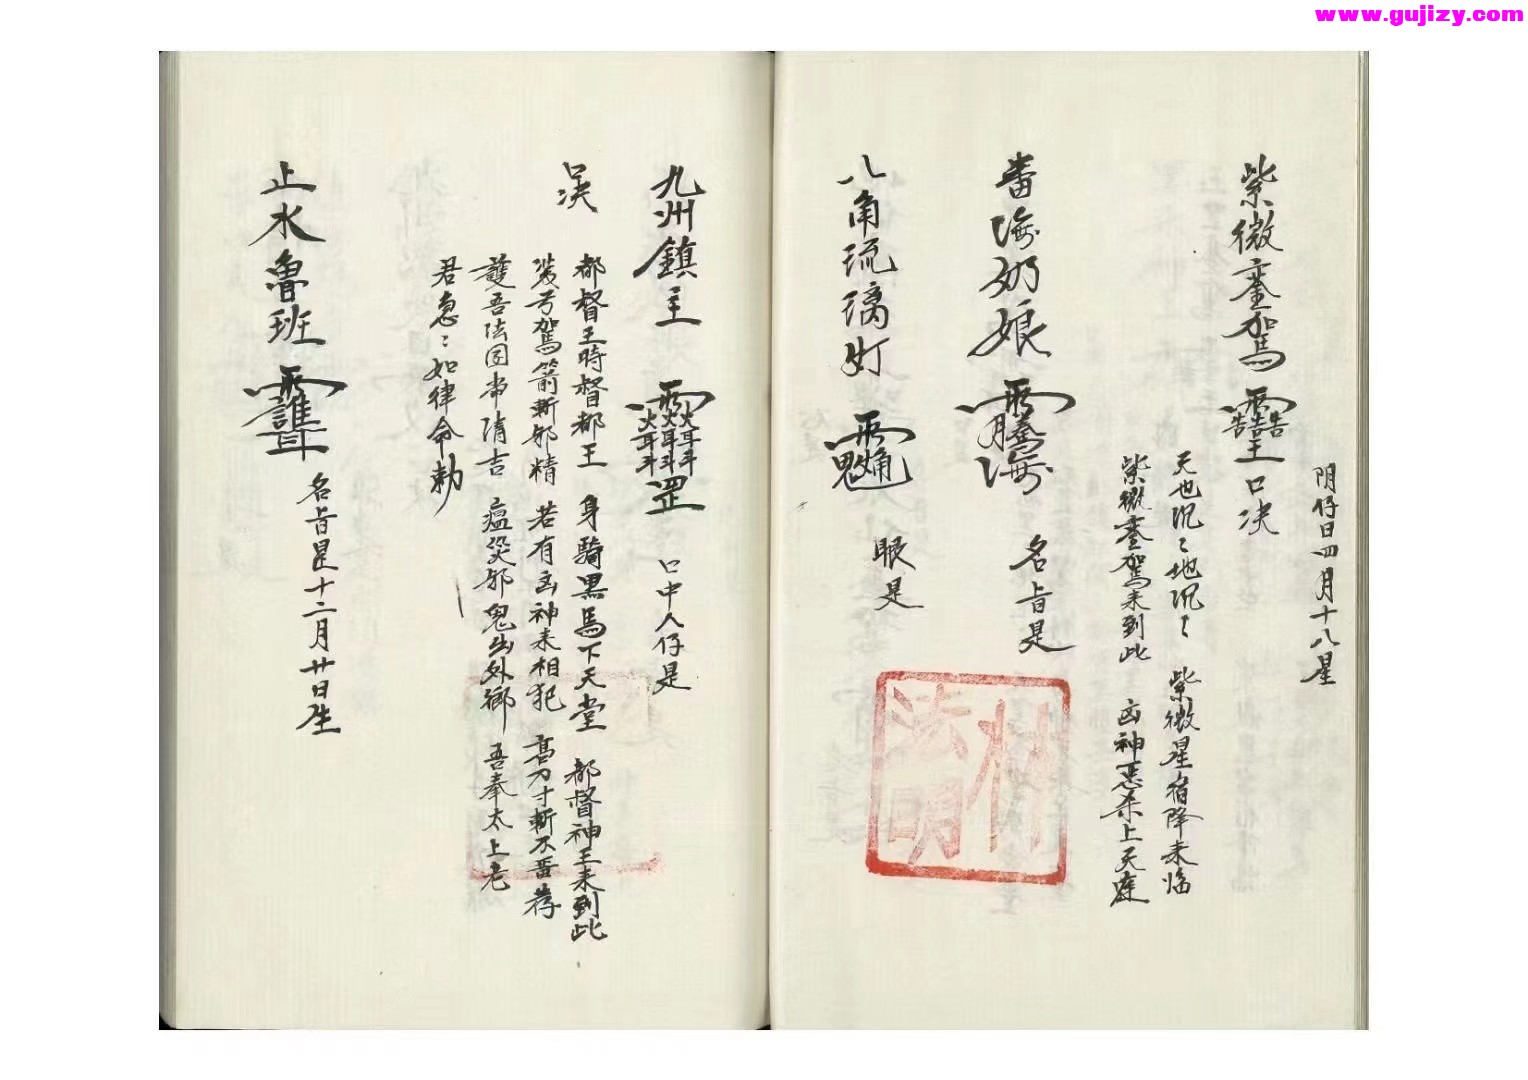 www.gujizy.com
阴仔日四月十八星
紫微鑾駕 口决
天也沉〻地沉〻 紫微星宿降来临
紫微鑾駕来到此 凶神恶杀上天庭
奶娘 名旨是
八角琉璃灯 眼是
林
法明
九州鎮主 罡 口中人仔是
口决
都督王時督都王 身騎黑馬下天堂 都督神王来到此
弓駕箭斬邪精 若有凶神来相犯 高刀寸斬不留存
護吾法 吉 瘟災邪鬼出外鄉 吾奉太上老
君急〻如律令勅
止水魯班 名旨是十二月廿日生